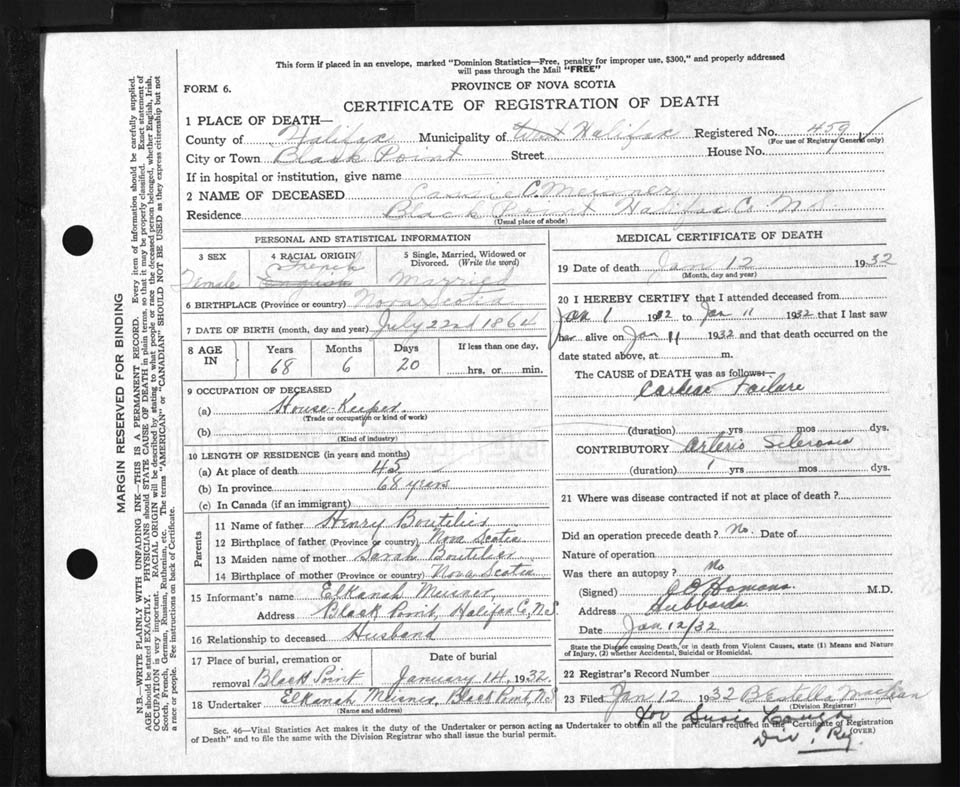 This form if placed in an envelope, marked "Dominion Statistics—Free, penalty for improper use, $300," and properly addressed
will pass through the Mail "FREE"
FORM 6.
PROVINCE OF NOVA SCOTIA
CERTIFICATE OF REGISTRATION OF DEATH
1 PLACE OF DEATH—
County of Halifax Municipality of West Halifax Registered No. 459
(For use of Registrar General only)
City or Town Black Point Street House No.
If in hospital or institution, give name
2 NAME OF DECEASED Cassie C. Meisner
Residence Black Point Halifax Co N.S.
(Usual place of abode)
PERSONAL AND STATISTICAL INFORMATION
3 SEX 4 RACIAL ORIGIN 5 Single, Married, Widowed or
Divorced. (Write the word)
French
Female English Married
6 BIRTHPLACE (Province or country) Nova Scotia
7 DATE OF BIRTH (month, day and year) July 22nd 1864
8 AGE IN Years Months Days If less than one day,
68 6 20 hrs. or min.
9 OCCUPATION OF DECEASED
(a) House-Keeper
(Trade or occupation or kind of work)
(b)
(Kind of industry)
10 LENGTH OF RESIDENCE (in years and months)
(a) At place of death 45
(b) In province 68 years
(c) In Canada (if an immigrant)
Parents
11 Name of father Henry Boutelier
12 Birthplace of father (Province or country) Nova Scotia
13 Maiden name of mother Sarah Boutelier
14 Birthplace of mother (Province or country) Nova Scotia
15 Informant's name Elkanah Meisner,
Address Black Point, Halifax Co, N.S.
16 Relationship to deceased Husband
17 Place of burial, cremation or Date of burial
removal Black Point January 14, 1932.
18 Undertaker Elkanah Meisner, Black Point, N.S
(Name and address)
MEDICAL CERTIFICATE OF DEATH
19 Date of death Jan 12 1932
(Month, day and year)
20 I HEREBY CERTIFY that I attended deceased from
Jan 1 1932 to Jan 11 1932 that I last saw
her alive on Jan 11 1932 and that death occurred on the
date stated above, at m.
The CAUSE of DEATH was as follows:—
Cardiac Failure
(duration) yrs mos dys.
CONTRIBUTORY Arterio Sclerosis
(duration) 1 yrs mos dys.
21 Where was disease contracted if not at place of death?
Did an operation precede death? No. Date of
Nature of operation
Was there an autopsy? No
(Signed) M.D.
Address Hubbards
Date Jan 12/32
State the Disease causing Death, or in death from Violent Causes, state (1) Means and Nature
of Injury, (2) whether Accidental, Suicidal or Homicidal.
22 Registrar's Record Number
23 Filed Jan 12 1932 B Estella MacLean
(Division Registrar)
for Susie
Div. Reg
Sec. 46—Vital Statistics Act makes it the duty of the Undertaker or person acting as Undertaker to obtain all the particulars required in the Certificate of Registration
of Death" and to file the same with the Division Registrar who shall issue the burial permit.
(OVER)
MARGIN RESERVED FOR BINDING
N.B.—WRITE PLAINLY WITH UNFADING INK—THIS IS A PERMANENT RECORD. Every item of information should be carefully supplied.
AGE should be stated EXACTLY. PHYSICIANS should STATE CAUSE OF DEATH in plain terms, so that it may be properly classified. Exact statement of
OCCUPATION is very important. RACIAL ORIGIN will be described by stating to what people or race the deceased person belonged, whether English, Irish,
Scotch, French, German, Russian, Ruthenian, etc. The terms "AMERICAN" or "CANADIAN" SHOULD NOT BE USED as they express citizenship but not
a race or people. See instructions on back of Certificate.